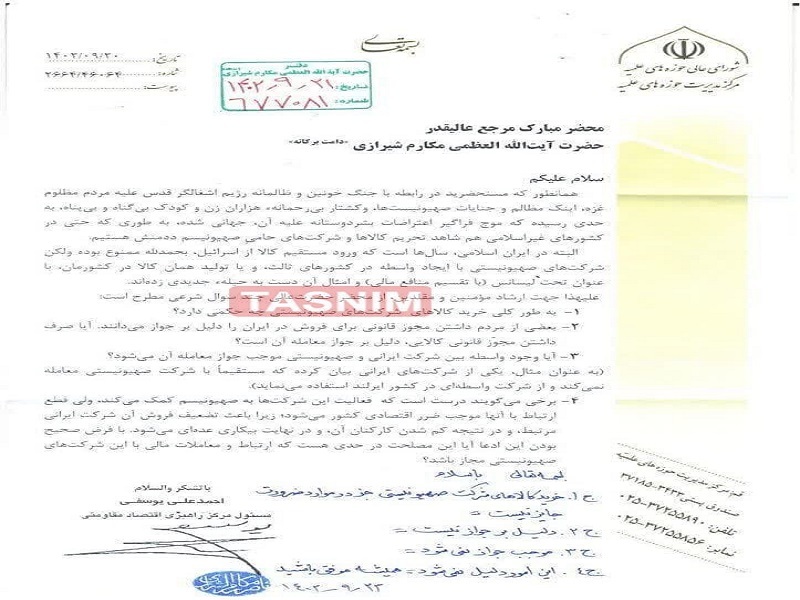 بسمه تعالی
شورای عالی حوزه های علمیه
مرکز مدیریت حوزه های علمیه
تاریخ: ۱۴۰۲/۰۹/۲۰
شماره: ۲۶۶۴/۴۶۰۶۴
پیوست:
دفتر
حضرت آیة الله العظمی مکارم شیرازی
تاریخ: ۱۴۰۲_۹_۲۱
شماره: ۶۷۷۰۸۱
محضر مبارک مرجع عالیقدر
حضرت آیت‌الله العظمی مکارم شیرازی «دامت برکاته»
سلام علیکم
همانطور که مستحضرید در رابطه با جنگ خونین و ظالمانه رژیم اشغالگر قدس علیه مردم مظلوم
غزه، اینک مظالم و جنایات صهیونیست‌ها، وکشتار بی‌رحمانه، هزاران زن و کودک بی‌گناه و بی‌پناه، به
حدی رسیده که موج فراگیر اعتراضات بشردوستانه علیه آن، جهانی شده، به طوری که حتی در
کشورهای غیراسلامی هم شاهد تحریم کالاها و شرکت‌های حامی صهیونیسم ددمنش هستیم.
البته در ایران اسلامی، سال‌ها است که ورود مستقیم کالا از اسرائیل، بحمدلله ممنوع بوده ولکن
شرکت‌های صهیونیستی با ایجاد واسطه در کشورهای ثالث، و یا تولید همان کالا در کشورمان، با
عنوان تحت لیسانس (با تقسیم منافع مالی) و امثال آن دست به حیله، جدیدی زده‌اند.
علیهذا جهت ارشاد مؤمنین و مقلدین از محضر حضرت‌عالی چند سوال شرعی مطرح است:
TASNIM
۱- به طور کلی خرید کالاهای شرکت‌های صهیونیستی چه حکمی دارد؟
۲- بعضی از مردم داشتن مجوز قانونی برای فروش در ایران را دلیل بر جواز می‌دانند. آیا صرف
داشتن مجوّز قانونی کالایی، دلیل بر جواز معامله آن است؟
۳- آیا وجود واسطه بین شرکت ایرانی و صهیونیستی موجب جواز معامله آن می‌شود؟
(به عنوان مثال، یکی از شرکت‌های ایرانی بیان کرده که مستقیماً با شرکت صهیونیستی معامله
نمی‌کند و از شرکت واسطه‌ای در کشور ایرلند استفاده می‌نماید).
۴- برخی می‌گویند درست است که فعالیت این شرکت‌ها به صهیونیسم کمک می‌کند، ولی قطع
ارتباط با آنها موجب ضرر اقتصادی کشور می‌شود؛ زیرا باعث تضعیف فروش آن شرکت ایرانی
مرتبط، و در نتیجه کم شدن کارکنان آن، و در نهایت بیکاری عده‌ای می‌شود. با فرض صحیح
بودن این ادعا آیا این مصلحت در حدی هست که ارتباط و معاملات مالی با این شرکت‌های
صهیونیستی مجاز باشد؟
باتشکر والسلام
احمدعلی یوسفی
مسئول مرکز راهبری اقتصاد مقاومتی
بسمه تعالی باسلام
ج۱. خرید کالاهای شرکت صهیونیستی جز در موارد ضرورت
جایز نیست =
ج۲. دلیل بر جواز نیست =
ج۳. موجب جواز نمی شود =
ج۴. این امور دلیل نمی‌شود = همیشه موفق باشید
۱۴۰۲_۹_۲۳
قم مرکز مدیریت حوزه های علمیه
تلفن: ۰۲۵-۳۷۲۵۵۸۹۰
نمابر: ۰۲۵-۳۷۲۵۵۸۵۶